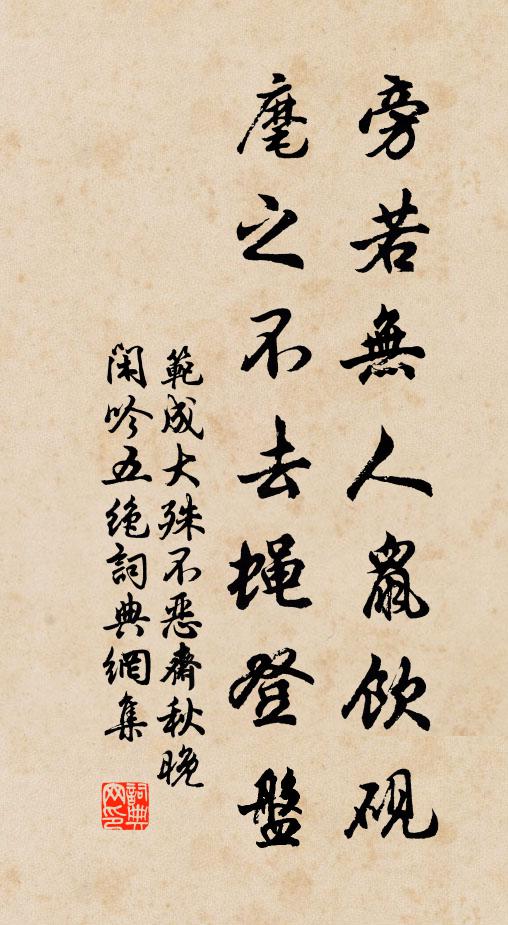 旁若無人鼠飲硯
麾之不去蝇登盤
範成大殊不惡齋秋晚
閑吟五绝詞典網集
詞典网印